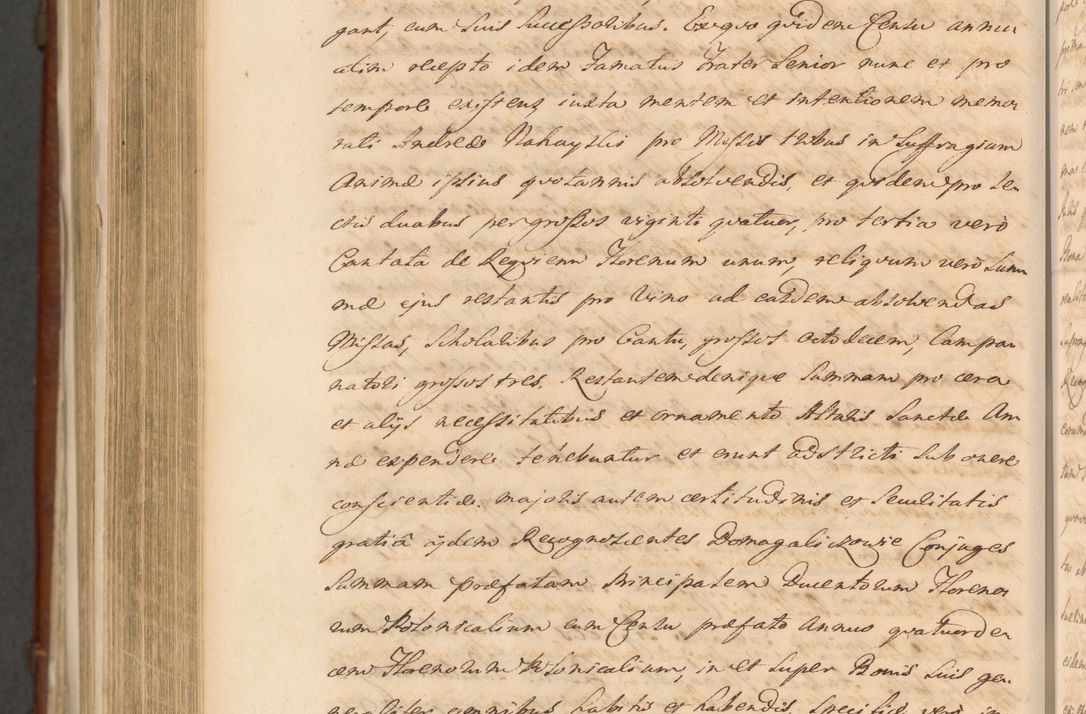 gant, cum suis Successoribus. Ex quo quidem Censu annu
atim recepto idem Famatus Frater Senior nunc et pro
tempore existens iuxta mentem et intentionem memo
rati Andreæ Nahayski pro Missis tribus in Suffragium
Animæ ipsius quotannis absolvendis, et quidem pro Le
ctis duabus per grossos viginti quatuor, pro tertia verò
Cantata de Requiem Florenum unum, reliquum verò Sum
mæ ejus restantis pro Vino ad easdem absolvendas
Missas, Scholaribus pro Cantu, grossos octodecem, Campa
natori grossos tres. Restantem denique Summam pro cera
et alÿs necessitatibus et ornamento Altaris Sanctæ An
næ expendere tenebuntur et erunt adstricti sub onere
conscientiæ. majoris autem certitudinis et Securitatis
gratiâ ÿdem Recognoscentes Domagaliczowie Conjuges
Summam præfatam Principalem Ducentorum Floreno
rum Polonicalium cum Censu præfato Annuo quatuorde
cem Florenorum Polonicalium, in et super Bonis suis ge
neraliter omnibus habitis et habendis, specificè verò in